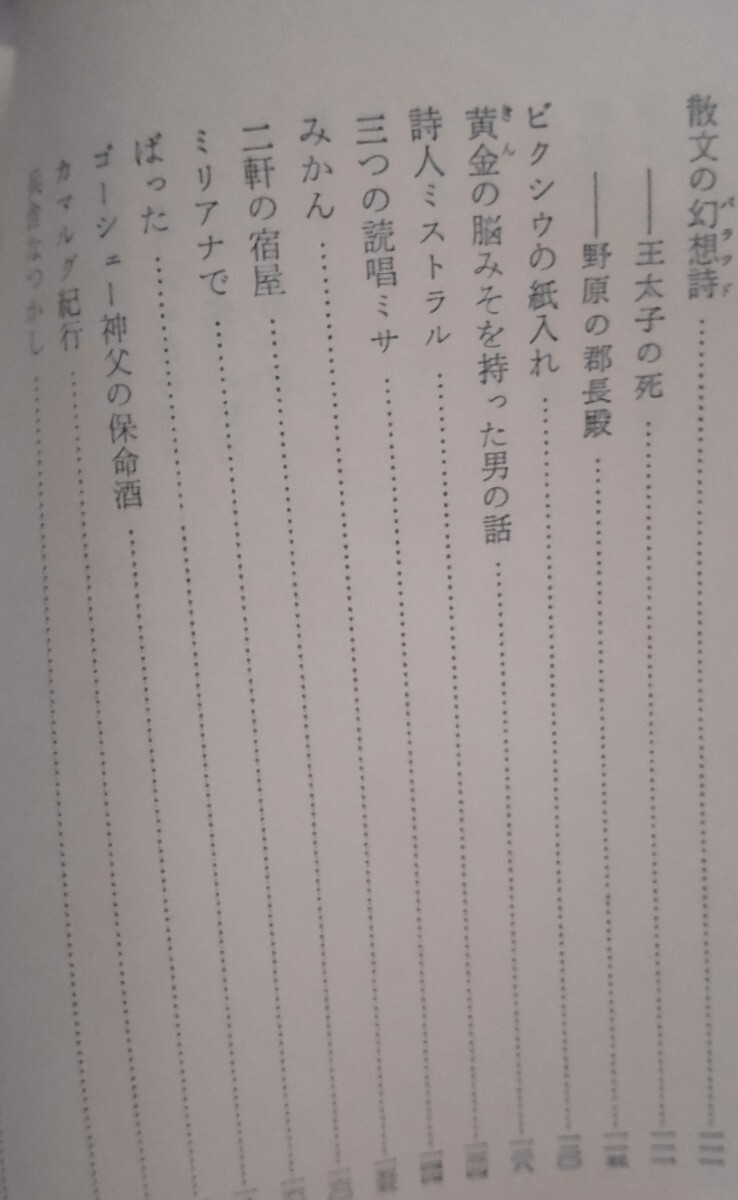 散文の幻想詩
バラッド
――王太子の死
――野原の郡長殿
ビクシウの紙入れ
黄金の脳みそを持った男の話
きん
詩人ミストラル
三つの読唱ミサ
みかん
二軒の宿屋
ミリアナで
ばった
ゴーシェー神父の保命酒
カマルグ紀行
兵舎なつかし